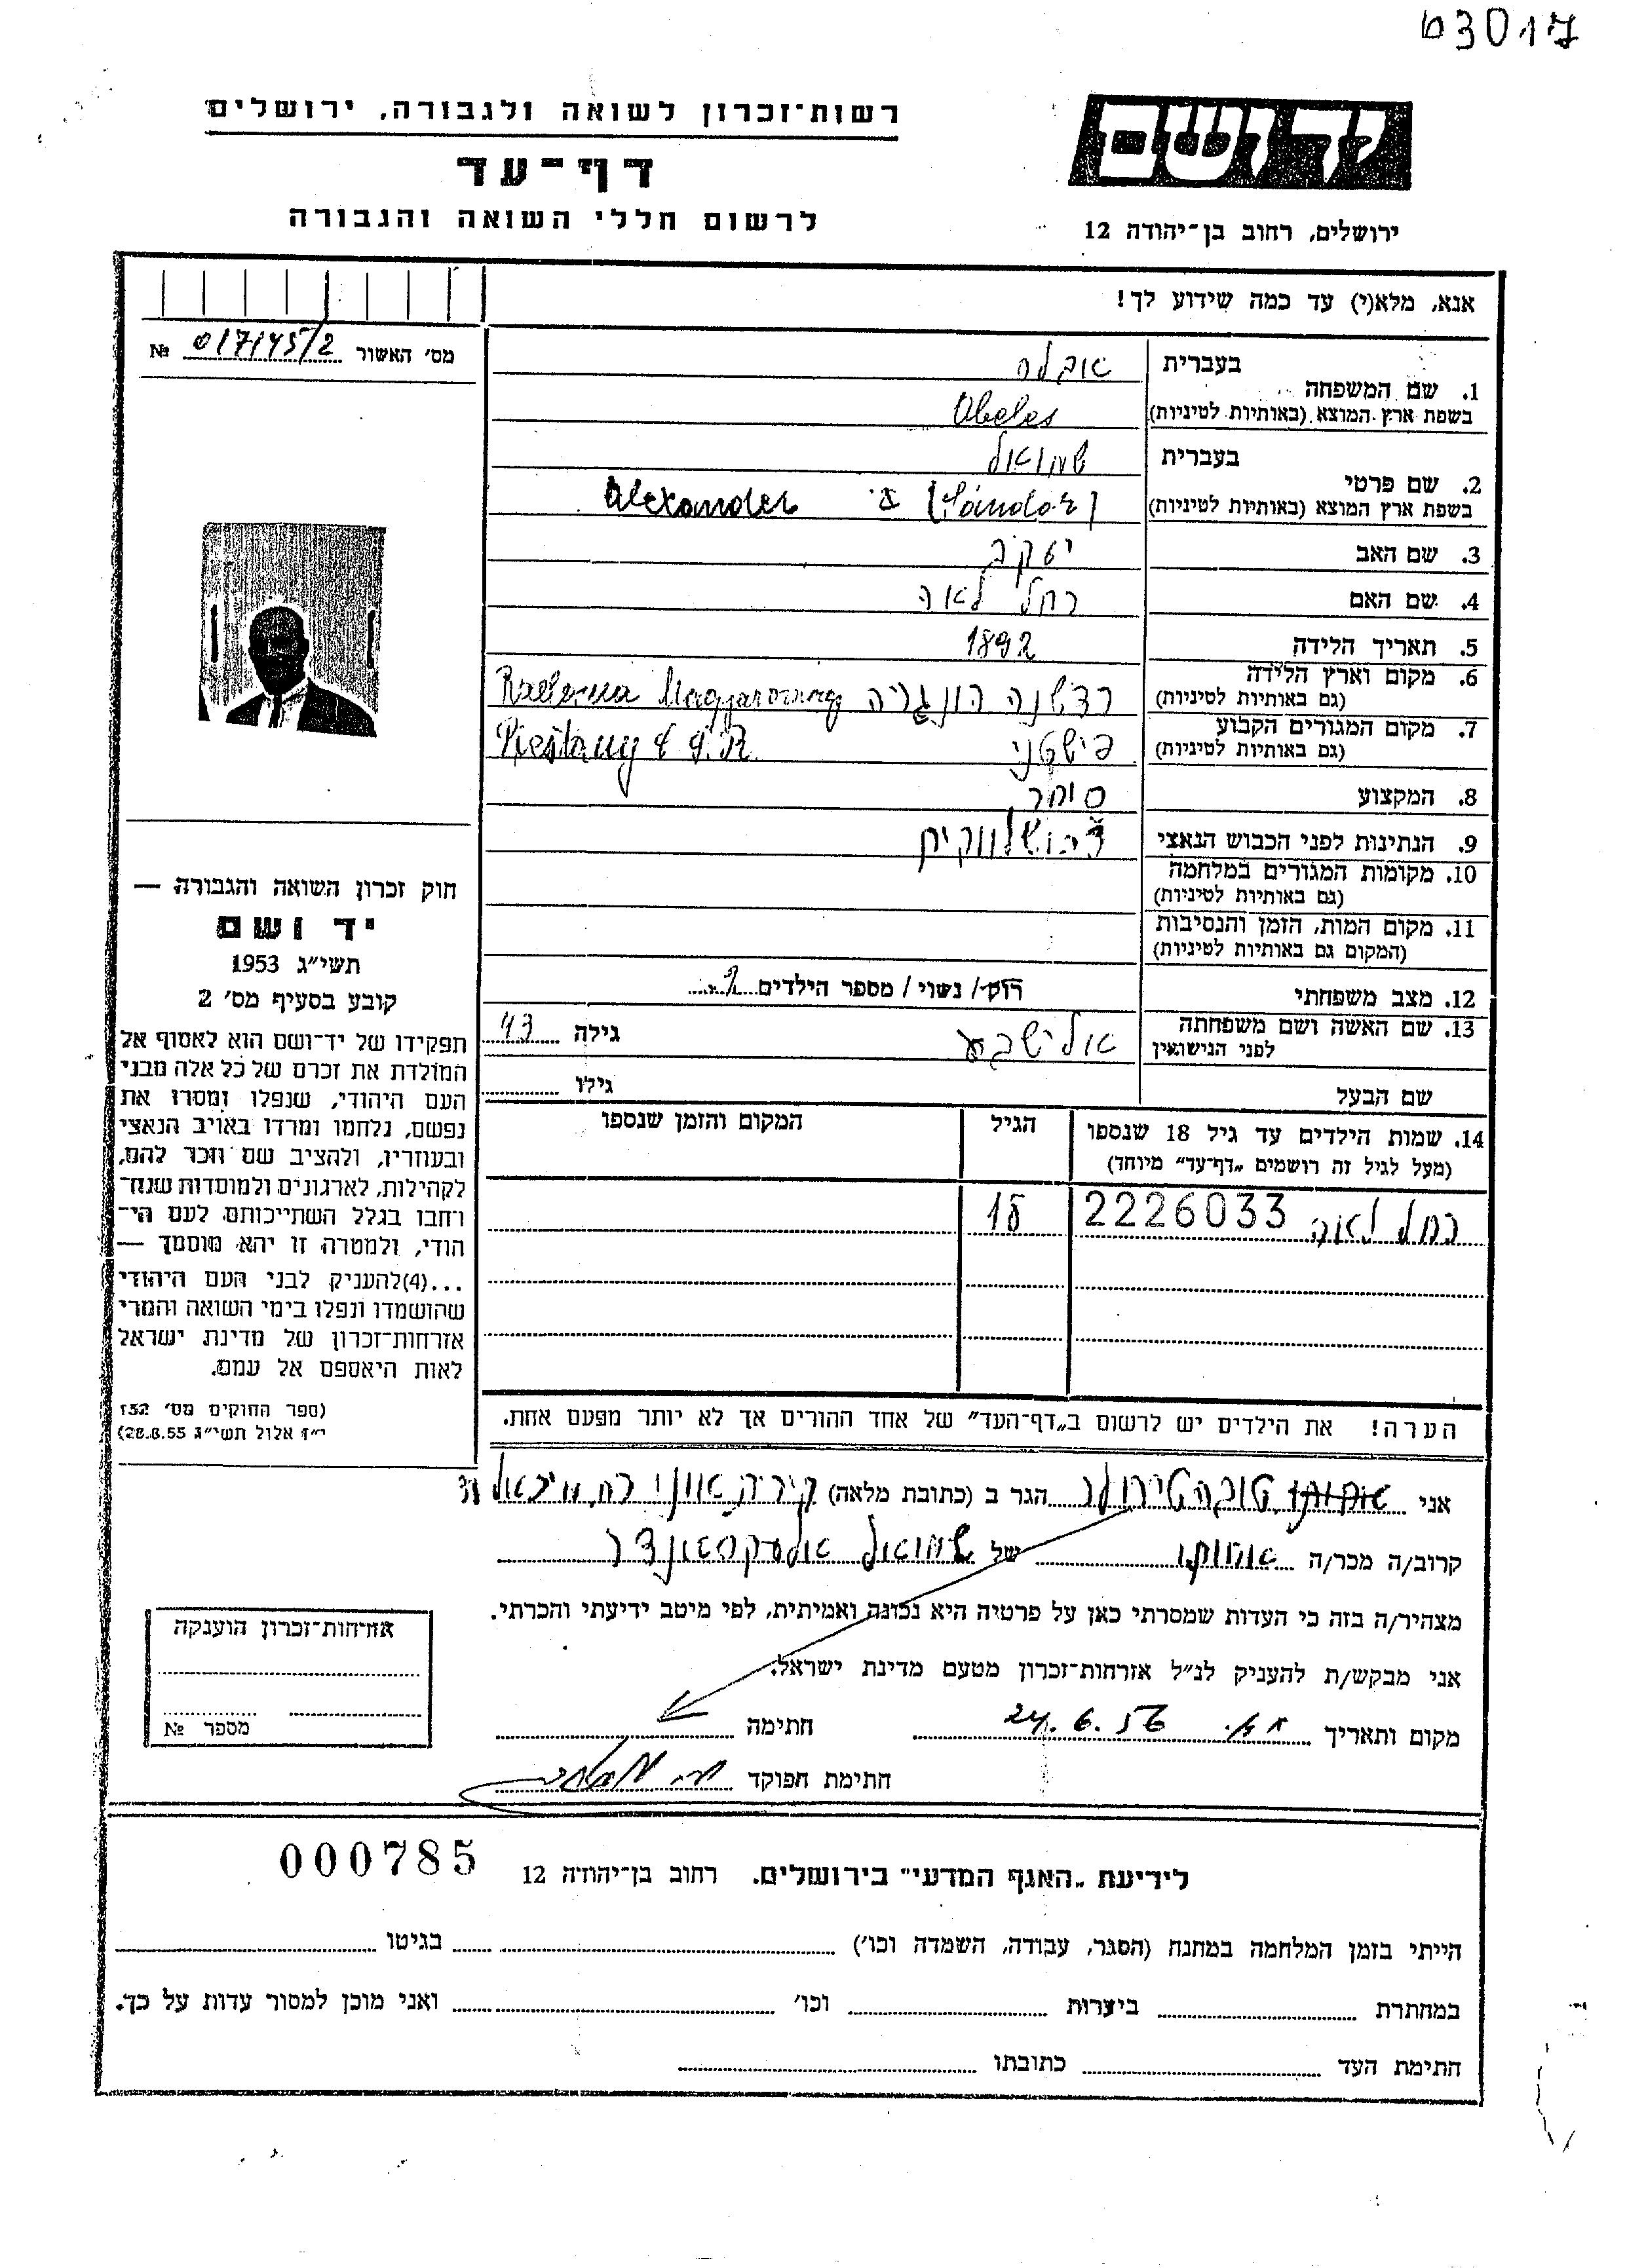 03017
יד ושם
רשות־זכרון לשואה ולגבורה, ירושלים
דף־עד
לרשום חללי השואה והגבורה
ירושלים, רחוב בן־יהודה 12
אנא, מלא(י) עד כמה שידוע לך!
מס׳ האשור 017145/2 №
1. שם המשפחה
בעברית אבלס
בשפת ארץ המוצא (באותיות לטיניות) Abeles
2. שם פרטי
בעברית שמואל
בשפת ארץ המוצא (באותיות לטיניות) (Sándor) Alexander
3. שם האב יעקב
4. שם האם רחל לאה
5. תאריך הלידה 1892
6. מקום וארץ הלידה
(גם באותיות לטיניות) הונגריה
7. מקום המגורים הקבוע
(גם באותיות לטיניות) פישטני Piešťany č.s.R.
8. המקצוע סוחר
9. הנתינות לפני הכבוש הנאצי
10. מקומות המגורים במלחמה
(גם באותיות לטיניות)
11. מקום המות, הזמן והנסיבות
(המקום גם באותיות לטיניות)
12. מצב משפחתי רווק / נשוי / מספר הילדים 2
13. שם האשה ושם משפחתה
לפני הנישואין אלישבע גילה 43
שם הבעל גילו
14. שמות הילדים עד גיל 18 שנספו הגיל המקום והזמן שנספו
(מעל לגיל זה רושמים „דף־עד״ מיוחד)
רחל לאה 2226033 18
הערה! את הילדים יש לרשום ב„דף־העד״ של אחד ההורים אך לא יותר מפעם אחת.
חוק זכרון השואה והגבורה —
יד ושם
תשי״ג 1953
קובע בסעיף מס׳ 2
תפקידו של יד־ושם הוא לאסוף אל
המולדת את זכרם של כל אלה מבני
העם היהודי, שנפלו ומסרו את
נפשם, נלחמו ומרדו באויב הנאצי
ובעוזריו, ולהציב שם וזכר להם,
לקהילות, לארגונים ולמוסדות שנח־
רחבו בגלל השתייכותם לעם הי־
הודי, ולמטרה זו יהא מוסמך —
...(4)להעניק לבני העם היהודי
שהושמדו ונפלו בימי השואה והמרי
אזרחות־זכרון של מדינת ישראל
לאות היאספם אל עמם.
(ספר החוקים מס׳ 132
י״ז אלול תשי״ג 28.8.53)
אני טובה טירולר הגר ב (כתובת מלאה) קירית אונו רח. מיכאל
קרוב/ה מכר/ה אחותו של שמואל אלכסאנדר
מצהיר/ה בזה כי העדות שמסרתי כאן על פרטיה היא נכונה ואמיתית, לפי מיטב ידיעתי והכרתי.
אני מבקש/ת להעניק לנ״ל אזרחות־זכרון מטעם מדינת ישראל.
מקום ותאריך 24.6.56 חתימה
חתימת הפוקד
אזרחות־זכרון הוענקה
מספר №
לידיעת „האגף המדעי״ בירושלים. רחוב בן־יהודה 12 000785
הייתי בזמן המלחמה במחנה (הסגר, עבודה, השמדה וכו׳) בגיטו
במחתרת ביערות וכו׳ ואני מוכן למסור עדות על כך.
חתימת העד כתובתו